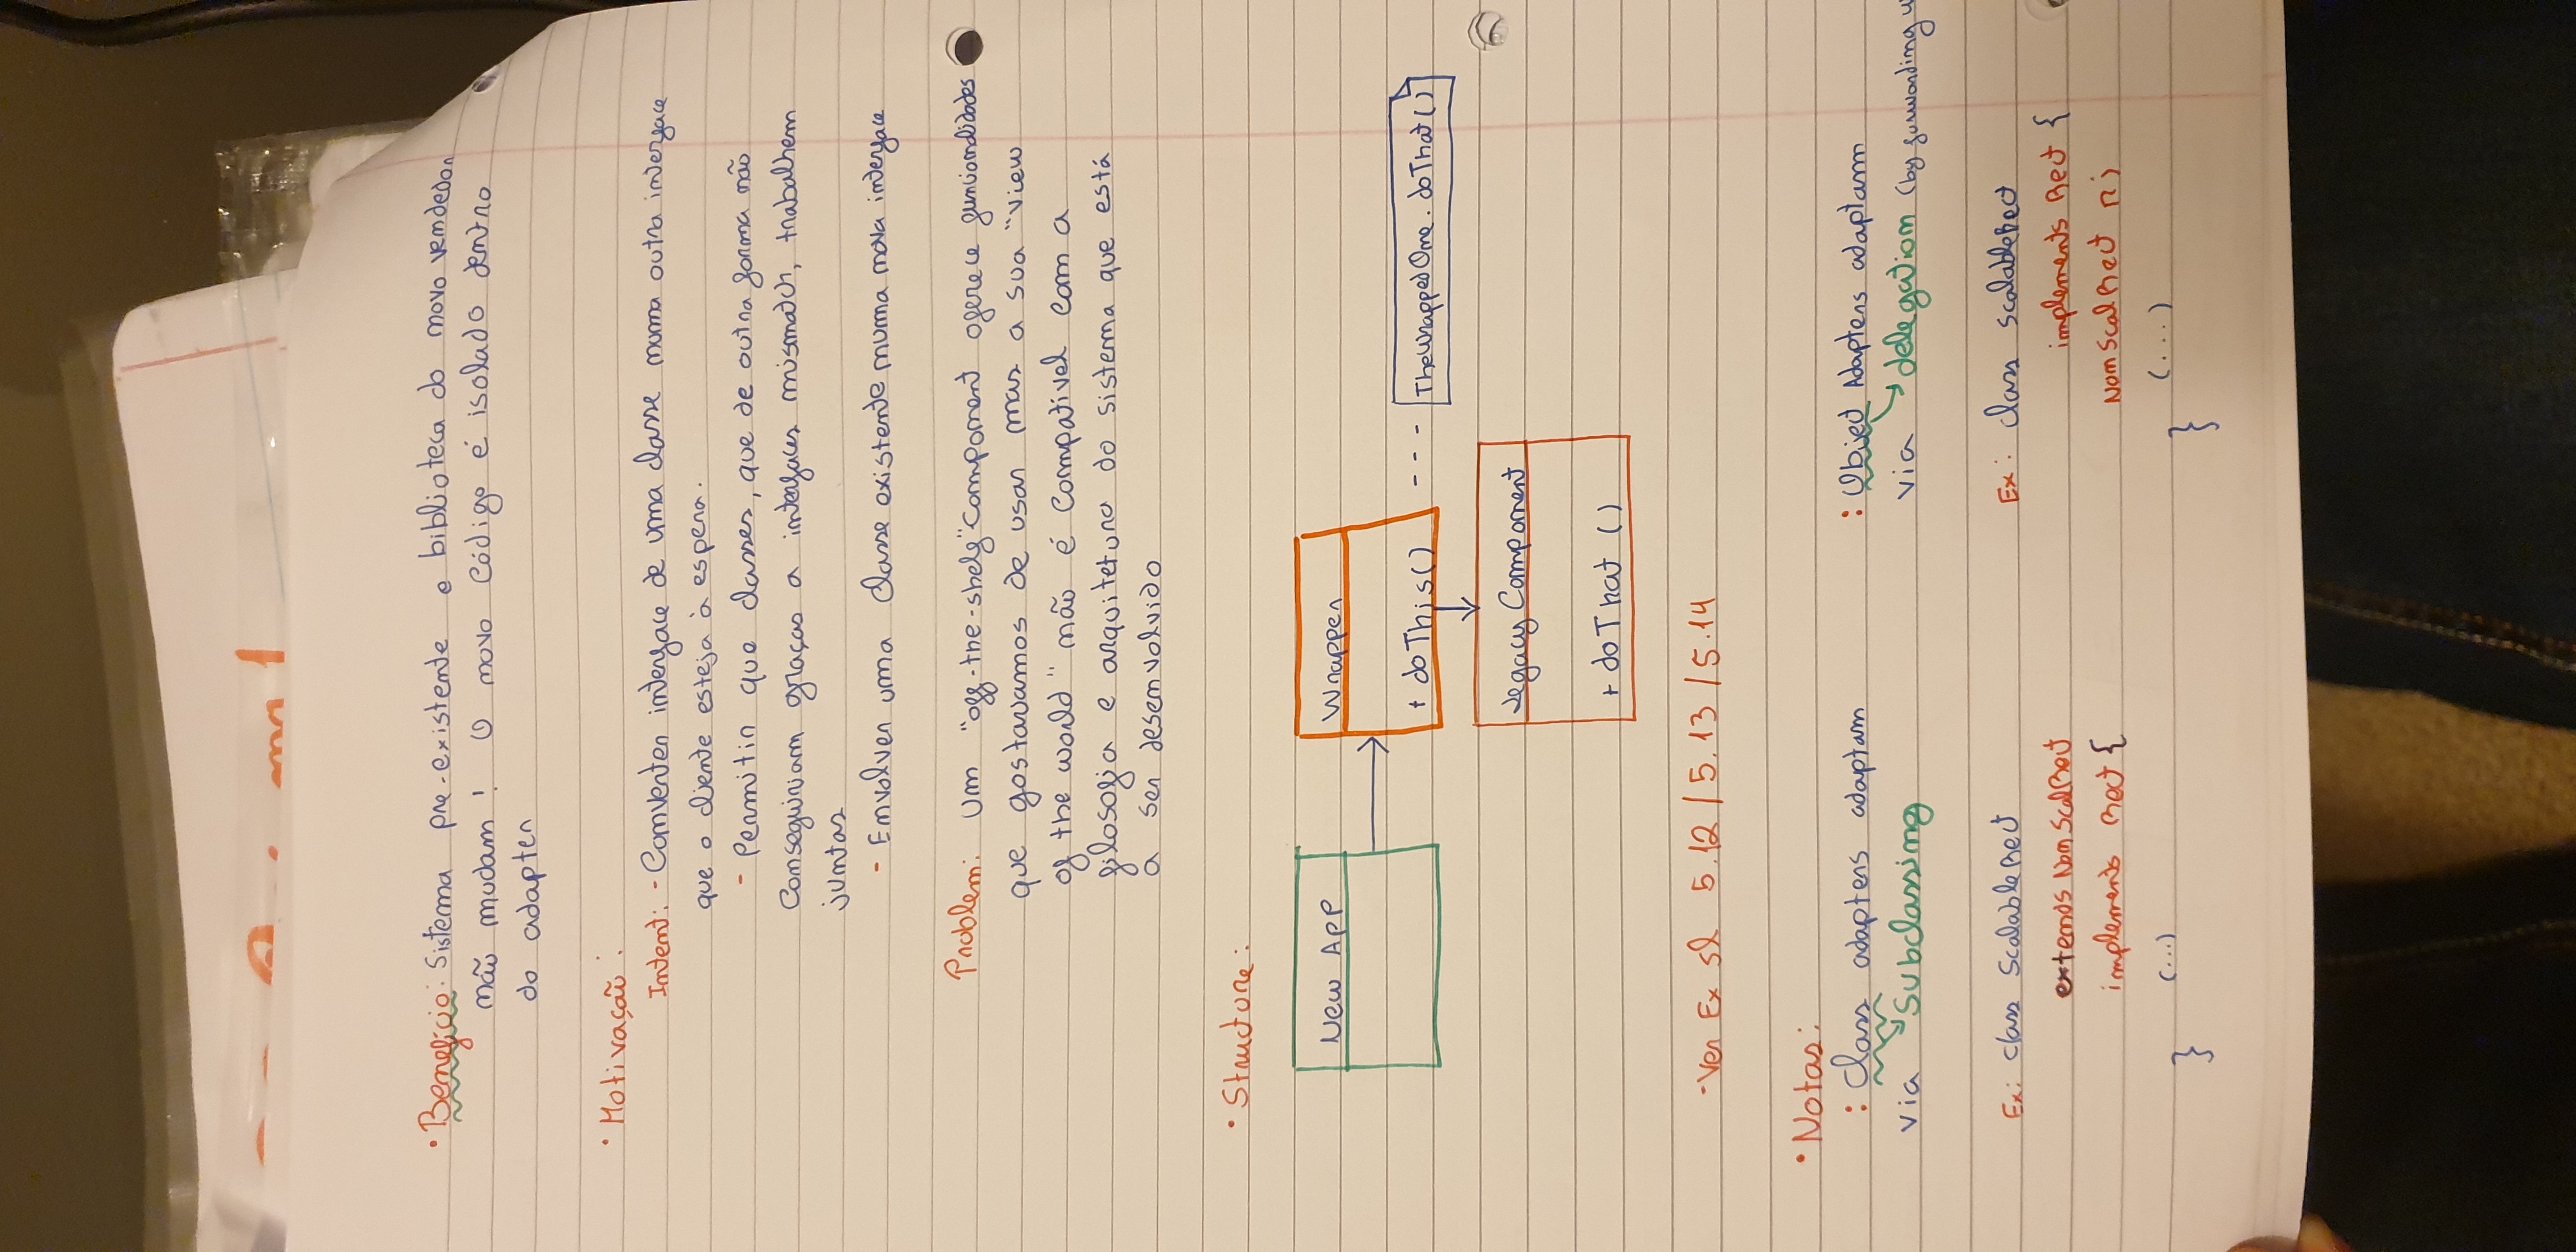 • Benefício: Sistema pre-existente e biblioteca do novo vendedor
não mudam! O novo código é isolado dentro
do adapter
• Motivação:
Intent: - Converter interface de uma classe numa outra interface
que o cliente esteja à espera.
- Permitir que classes, que de outra forma não
conseguiriam graças a interfaces mismatch, trabalhem
juntas
- Envolver uma classe existente numa nova interface
Problem: Um "off-the-shelf" component oferece funcionalidades
que gostavamos de usar mas a sua "view
of the world" não é compativel com a
filosofia e arquitetura do sistema que está
a ser desenvolvido
• Structure:
New App
Wrapper
+ doThis()
--- TheWrappedOne.doThat()
Legacy Component
+ doThat ()
- Ver Ex sl 5.12 / 5.13 / 5.14
• Notas:
: Class adapters adaptam
via Subclassing
Ex: class ScalableRect
extends NonScalRect
implements Rect {
(...)
}
: Object Adapters adaptam
via delegation (by forwarding
Ex: class ScalableRect
implements Rect {
NonScalRect r;
(...)
}